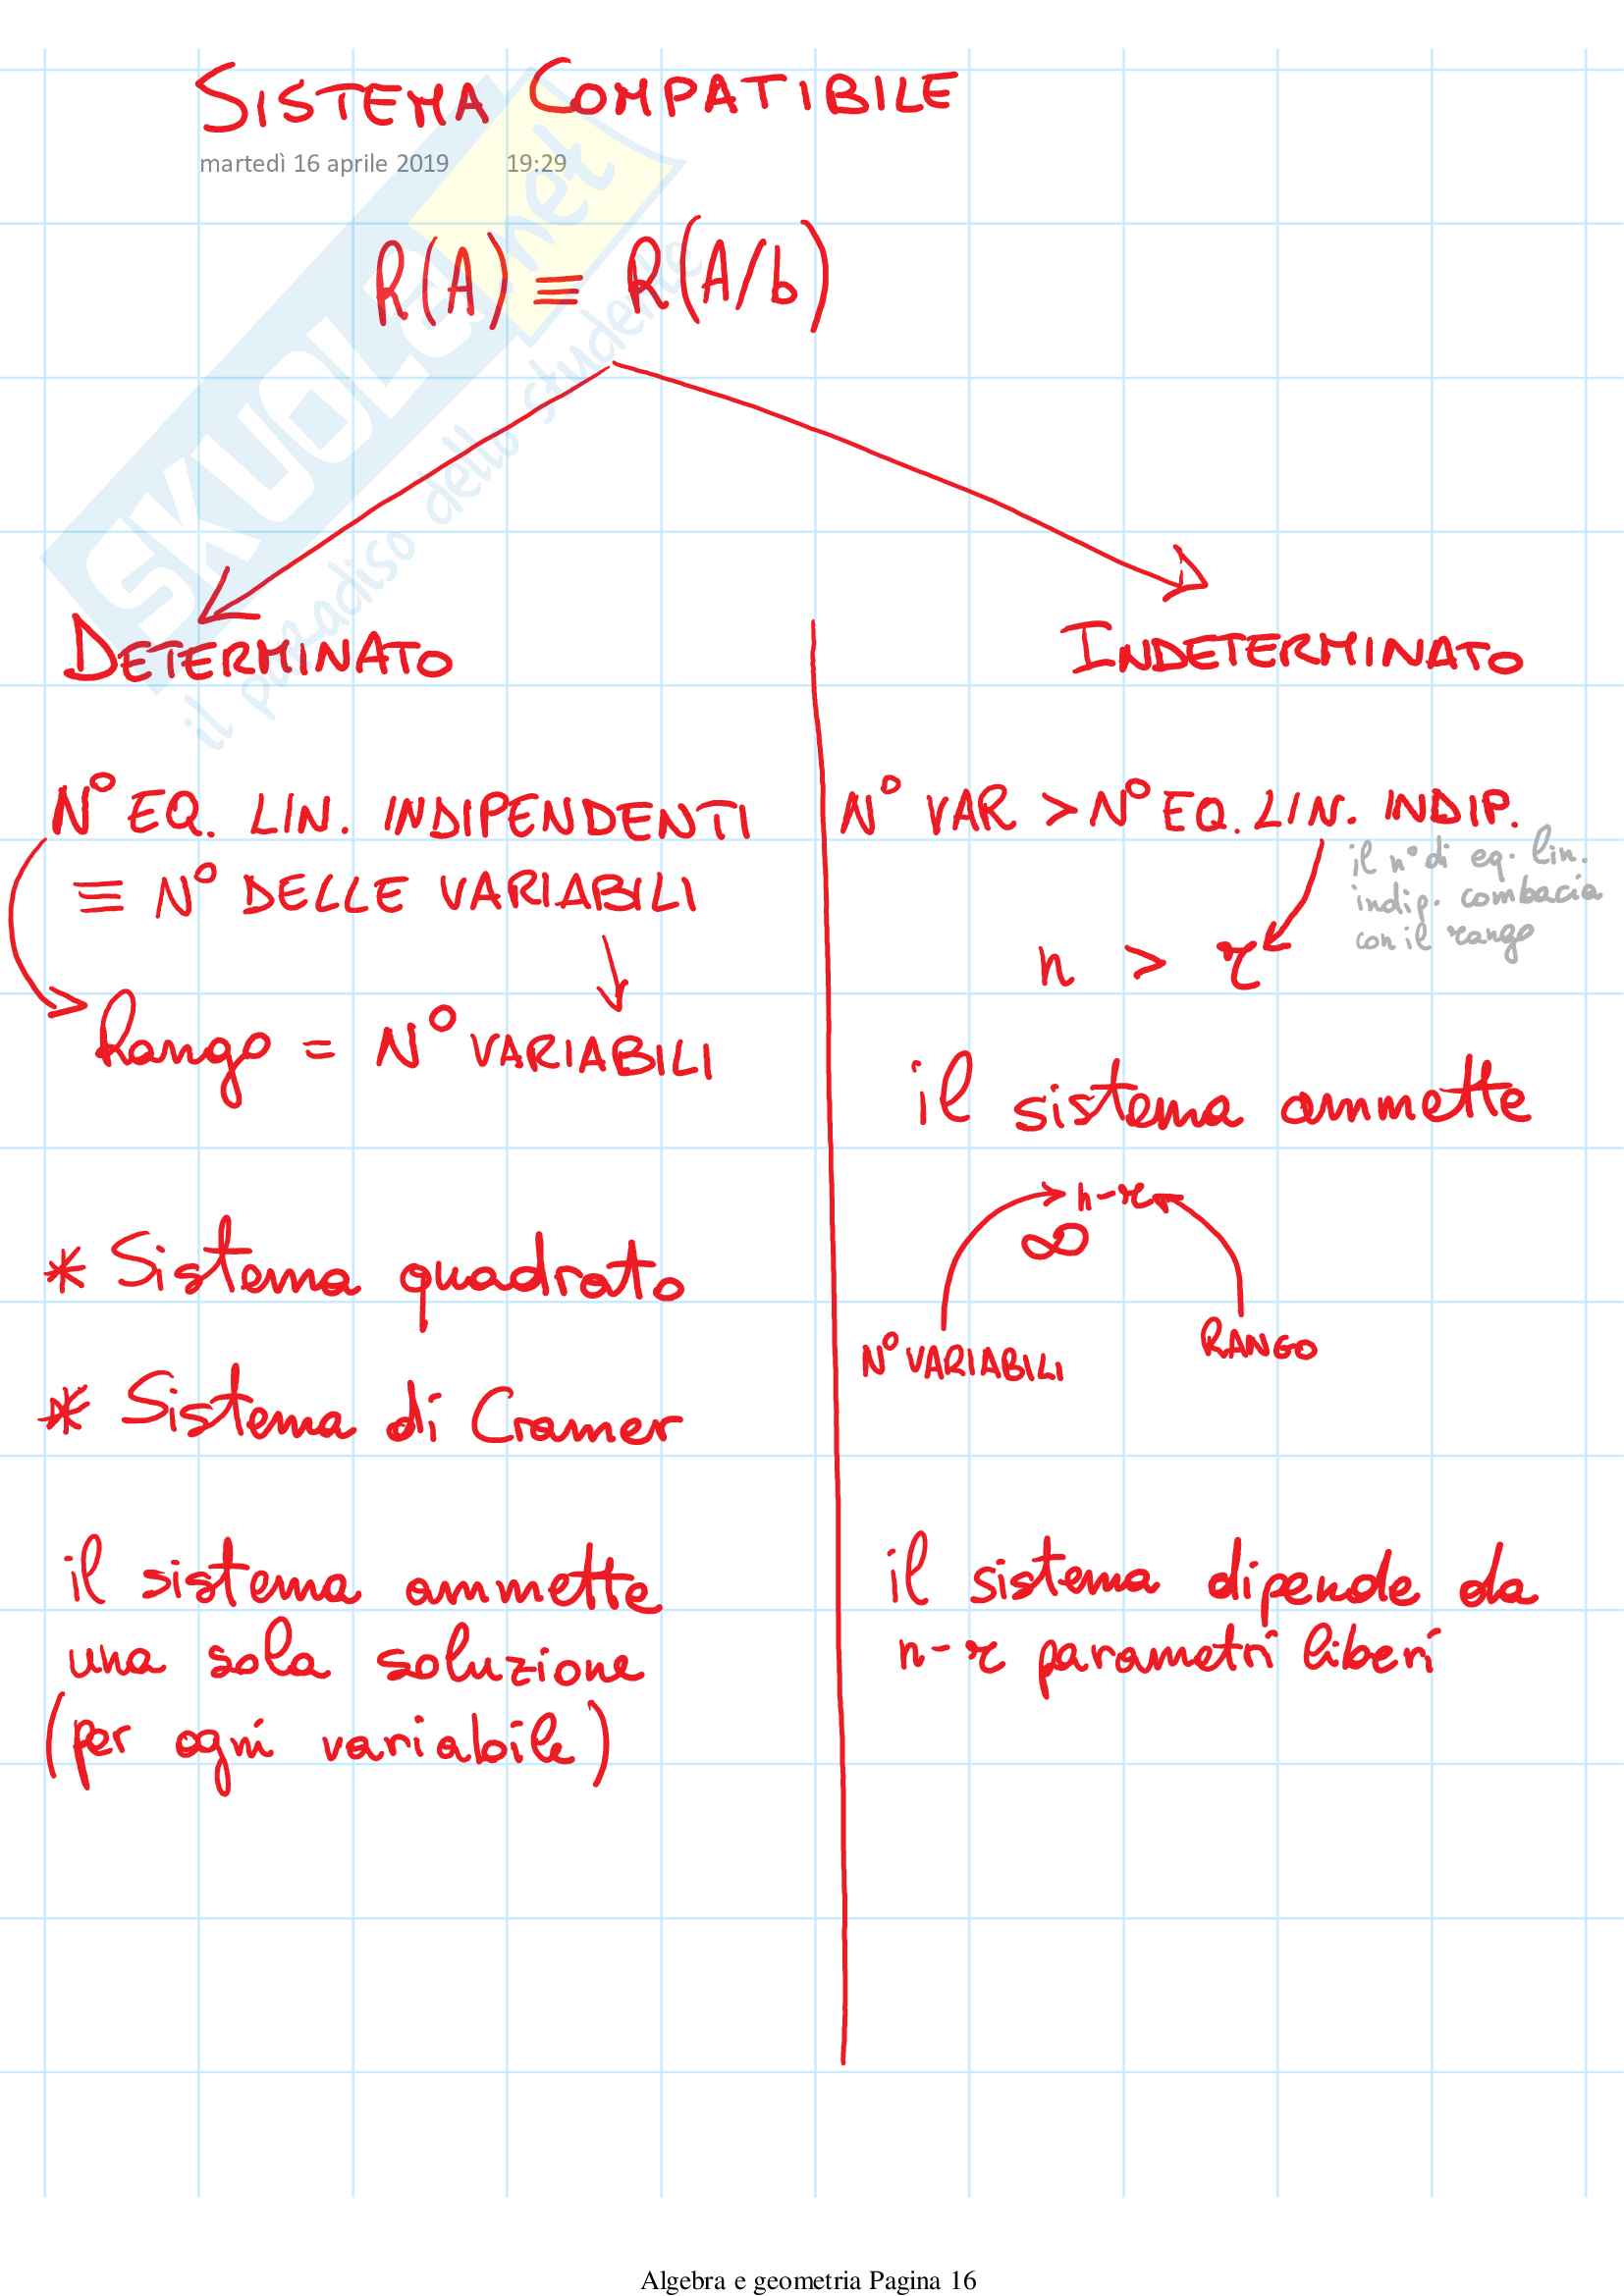 SISTEMA COMPATIBILE
martedì 16 aprile 2019 19:29
R(A) ≡ R(A/b)
SKUOLA.net
il paradiso dello studente
DETERMINATO
N° EQ. LIN. INDIPENDENTI
≡ N° DELLE VARIABILI
Rango = N° VARIABILI
* Sistema quadrato
* Sistema di Cramer
il sistema ammette
una sola soluzione
(per ogni variabile)
INDETERMINATO
N° VAR > N° EQ. LIN. INDIP.
il n° di eq. lin.
indip. combacia
con il rango
n > r
il sistema ammette
∞ n-r
N° VARIABILI
RANGO
il sistema dipende da
n-r parametri liberi
Algebra e geometria Pagina 16